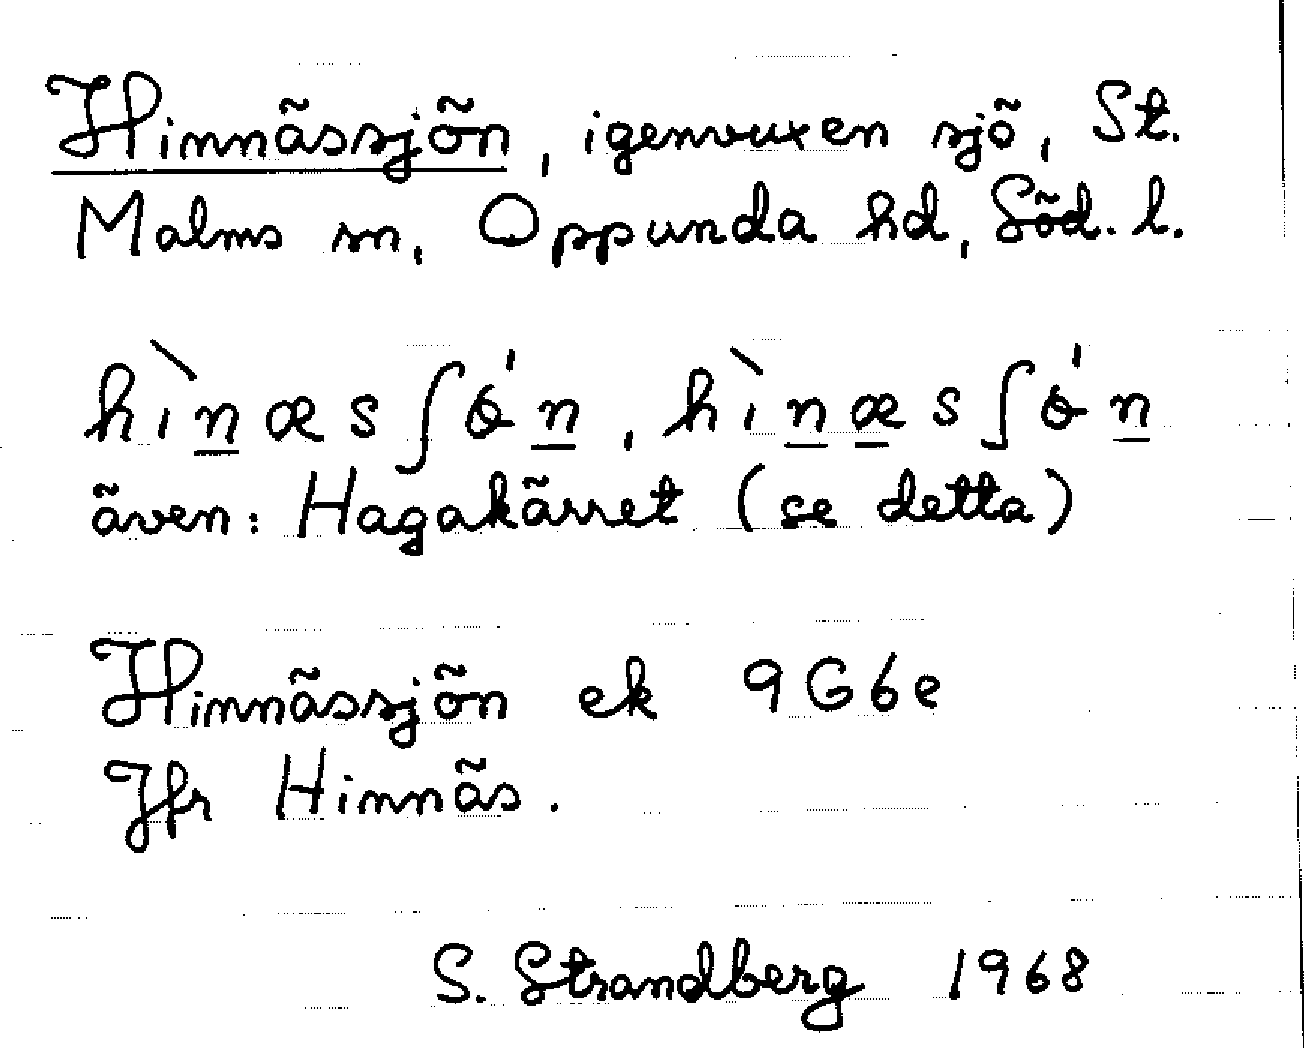 Hinnässjön, igenvuxen sjö, St.
Malms sn, Oppunda hd, Söd. l.
hìn̲æsʃɵ́n̲, hìn̲æ̲sʃɵ́n̲
även: Hagakärret (se detta)
Hinnässjön ek 9G6e
Jfr Hinnäs.
S. Strandberg 1968